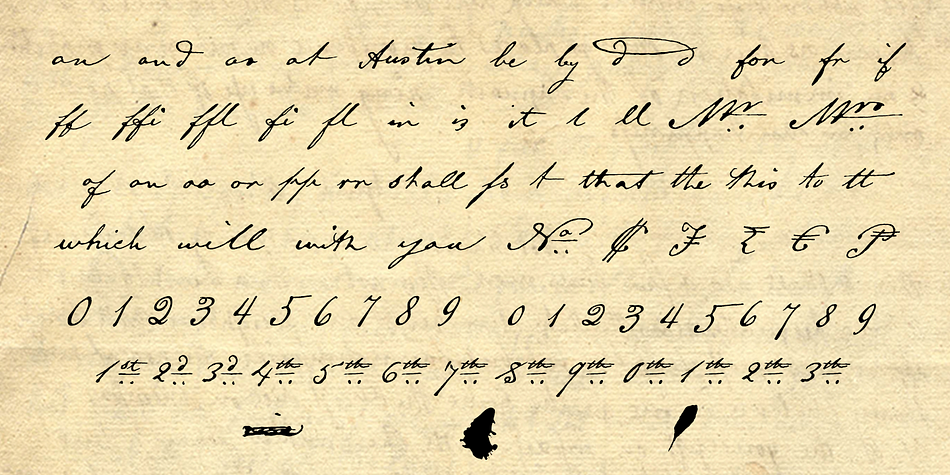 an and as at Austin be by d d for fr if
ff ffi ffl fi fl in is it l ll Mr. Mrs.
of on oo or pp rr shall ſs t that the this to tt
which will with you No. ₡ ₣ ₤ € ₱
0 1 2 3 4 5 6 7 8 9 0 1 2 3 4 5 6 7 8 9
1st 2d 3d 4th 5th 6th 7th 8th 9th 0th 1th 2th 3th